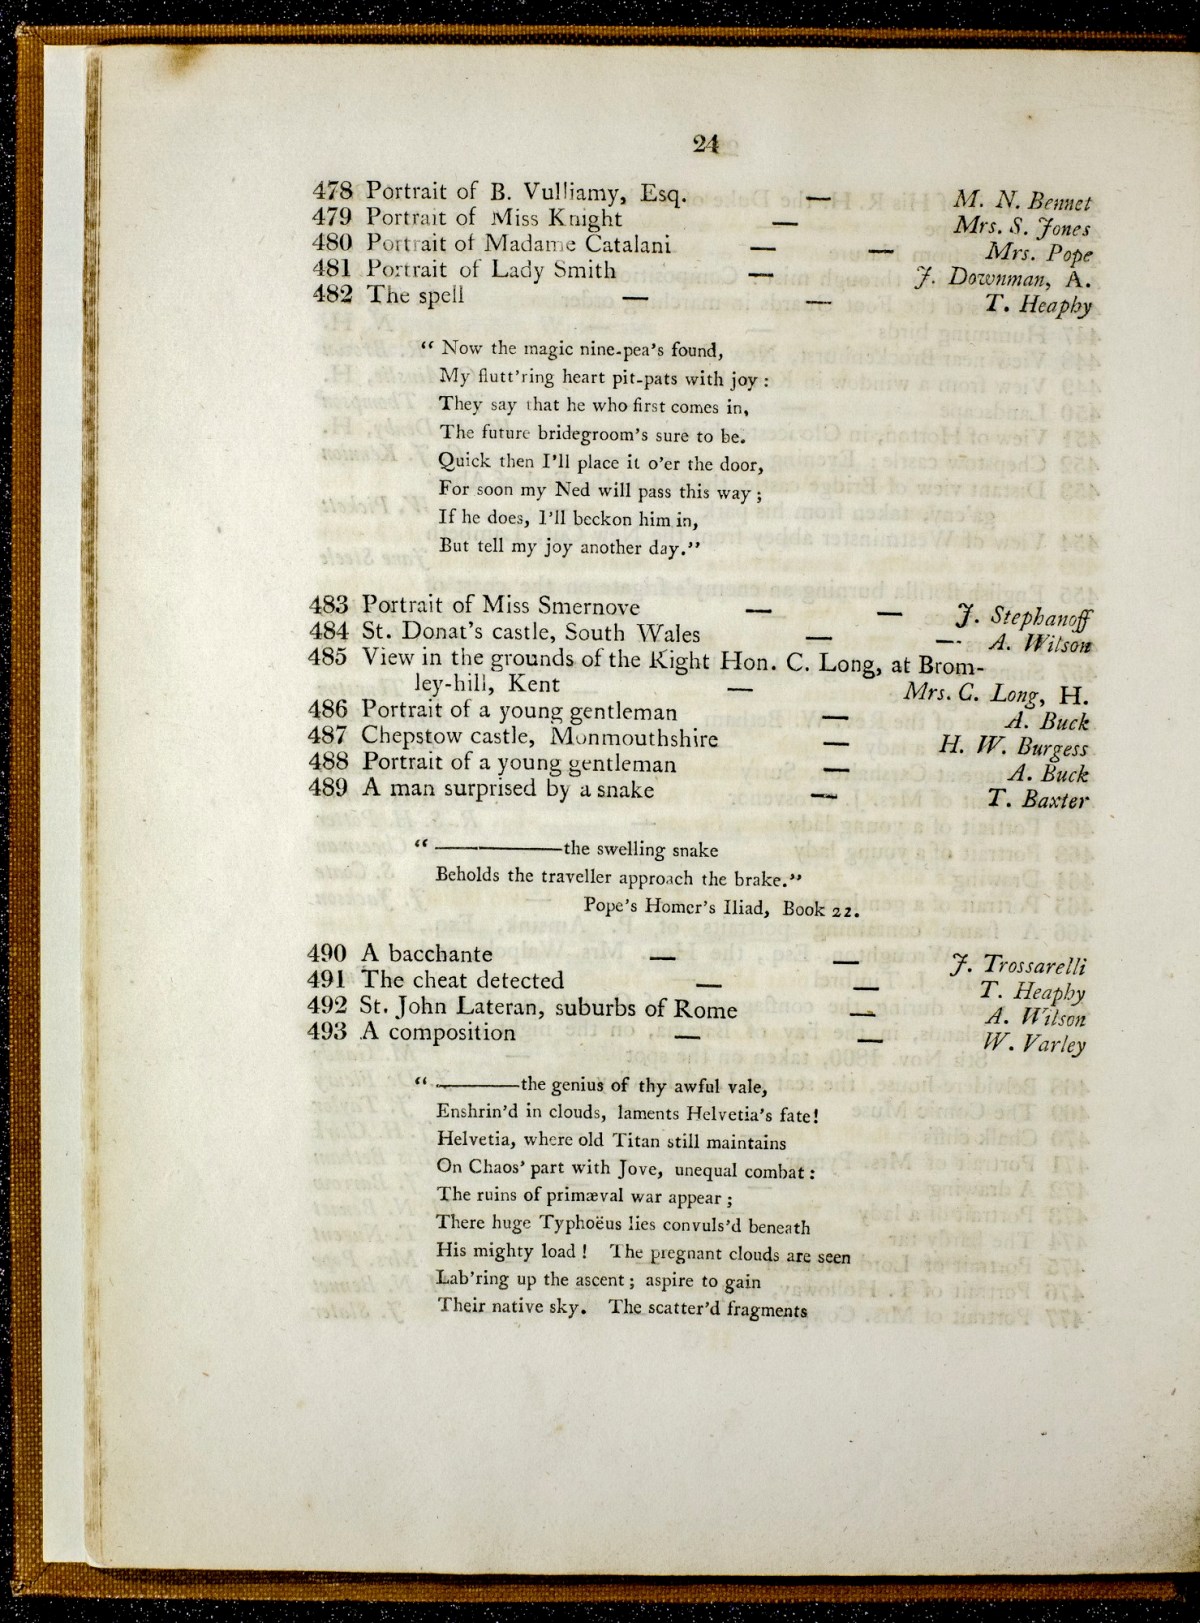 24
478 Portrait of B. Vulliamy, Esq. — M. N. Bennet
479 Portrait of Miss Knight — Mrs. S. Jones
480 Portrait of Madame Catalani — — Mrs. Pope
481 Portrait of Lady Smith — J. Downman, A.
482 The spell — — T. Heaphy
“ Now the magic nine-pea's found,
My flutt'ring heart pit-pats with joy :
They say that he who first comes in,
The future bridegroom's sure to be.
Quick then I'll place it o'er the door,
For soon my Ned will pass this way ;
If he does, I'll beckon him in,
But tell my joy another day.”
483 Portrait of Miss Smernove — — J. Stephanoff
484 St. Donat's castle, South Wales — — A. Wilson
485 View in the grounds of the Right Hon. C. Long, at Brom-
ley-hill, Kent — Mrs. C. Long, H.
486 Portrait of a young gentleman — A. Buck
487 Chepstow castle, Monmouthshire — H. W. Burgess
488 Portrait of a young gentleman — A. Buck
489 A man surprised by a snake — T. Baxter
“ ————the swelling snake
Beholds the traveller approach the brake.”
Pope's Homer's Iliad, Book 22.
490 A bacchante — — J. Trossarelli
491 The cheat detected — — T. Heaphy
492 St. John Lateran, suburbs of Rome — A. Wilson
493 A composition — — W. Varley
“ ————the genius of thy awful vale,
Enshrin'd in clouds, laments Helvetia's fate!
Helvetia, where old Titan still maintains
On Chaos' part with Jove, unequal combat :
The ruins of primæval war appear ;
There huge Typhoëus lies convuls'd beneath
His mighty load ! The pregnant clouds are seen
Lab'ring up the ascent ; aspire to gain
Their native sky. The scatter'd fragments